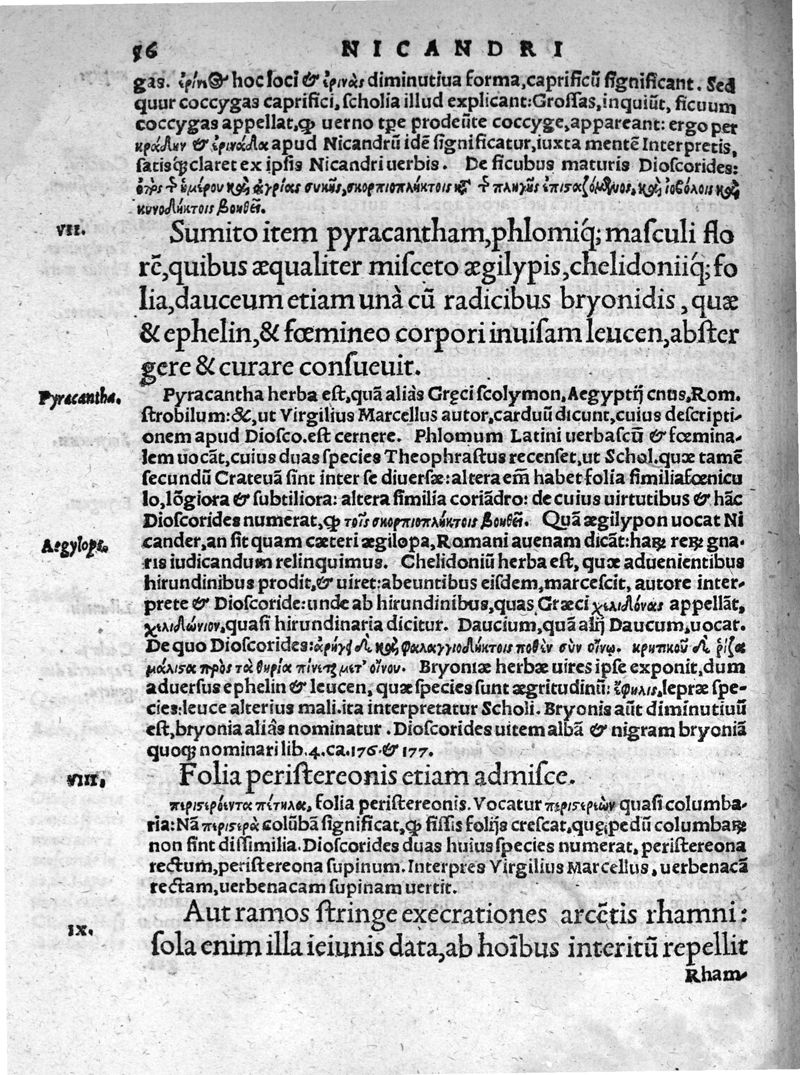 96 NICANDRI
gas. ἐρινὸς hoc loci & ἐρινὰς diminutiua forma, caprificū significant. Sed
quur coccygas caprifici, scholia illud explicant: Grossas, inquiūt, ficuum
coccygas appellat, ꝙ uerno tp̄e prodeūte coccyge, appareant: ergo per
κράδην & ἐρινάδα apud Nicandrū idē significatur, iuxta mentē Interpretis,
satisq́ꝫ claret ex ipsis Nicandri uerbis. De ficubus maturis Dioscorides:
ἡμέρου καὶ ἀγρίας συκῆς, σκορπιοπλήκτοις πληγῆς ἐπισταζόμενος, καὶ ἰοβόλοις καὶ
κυνοδήκτοις βοηθεῖ.
VII.
Sumito item pyracantham, phlomiq́; masculi flo
rē, quibus æqualiter misceto ægilypis, chelidoniiq́; fo
lia, dauceum etiam unà cū radicibus bryonidis, quæ
& ephelin, & fœmineo corpori inuisam leucen, abster
gere & curare consueuit.
Pyracantha.
Pyracantha herba est, quā aliâs Gręci scolymon, Aegyptij cnus, Rom.
strobilum: &, ut Virgilius Marcellus autor, carduū dicunt, cuius descripti-
onem apud Diosco. est cernere. Phlomum Latini uerbascū & fœmina-
lem uocāt, cuius duas species Theophrastus recenset, ut Schol. quæ tamē
secundū Crateuā sint inter se diuersæ: altera em̄ habet folia similia fœnicu
lo, lōgiora & subtiliora: altera similia coriādro: de cuius uirtutibus & hāc
Dioscorides numerat, ꝙ τοῖς σκορπιοπλήκτοις βοηθεῖ. Quā ægilypon uocat Ni
Aegylops.
cander, an sit quam cæteri ægilopa, Romani auenam dicāt: haꝝ reꝝ gna-
ris iudicandum relinquimus. Chelidoniū herba est, quæ aduenientibus
hirundinibus prodit, & uiret: abeuntibus eisdem, marcescit, autore inter-
prete & Dioscoride: unde ab hirundinibus, quas Græci χελιδόνας appellāt,
χελιδώνιον, quasi hirundinaria dicitur. Daucium, quā alij Daucum, uocat.
De quo Dioscorides: ἀρήγει δὲ καὶ φαλαγγιοδήκτοις ποθὲν σὺν οἴνῳ. κρητικοῦ δὲ ῥίζα
μάλιστα πρὸς τὰ θηρία πίνεται μετ' οἴνου. Bryoniæ herbæ uires ipse exponit, dum
aduersus ephelin & leucen, quæ species sunt ægritudinū: ἔφηλις, lepræ spe-
cies: leuce alterius mali. ita interpretatur Scholi. Bryonis aūt diminutiuū
est, bryonia aliâs nominatur. Dioscorides uitem albā & nigram bryoniā
quoqꝫ nominari lib. 4. ca. 176. & 177.
VIII.
Folia peristereonis etiam admisce.
περιστερόεντα πέτηλα, folia peristereonis. Vocatur περιστερεὼν quasi columba-
ria: Nā περιστερὰ colūbā significat, ꝙ fissis folijs crescat, quę pedū columbaꝝ
non sint dissimilia. Dioscorides duas huius species numerat, peristereona
rectum, peristereona supinum. Interpres Virgilius Marcellus, uerbenacā
rectam, uerbenacam supinam uertit.
IX.
Aut ramos stringe execrationes arcētis rhamni:
sola enim illa ieiunis data, ab hoībus interitū repellit
Rham-